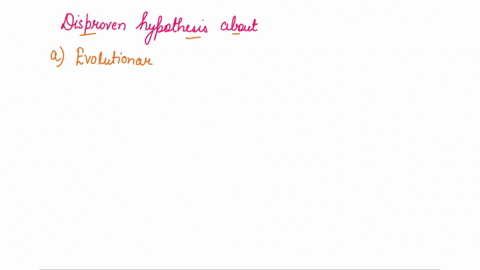 Disproven hypothesis about
a) Evolutionar